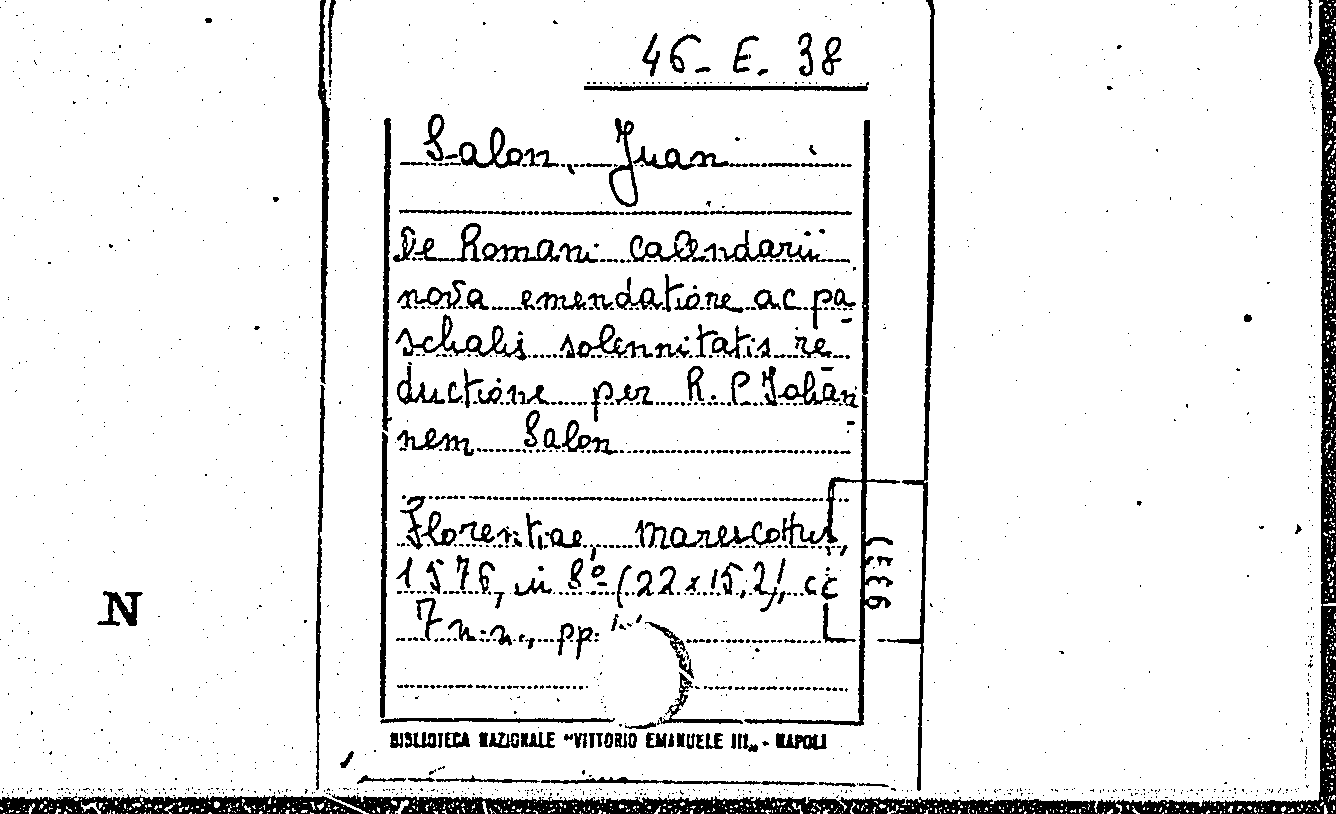 46-E.38
Salon, Juan
De Romani calendarii
nova emendatione ac pa-
schalis solennitatis re-
ductione per R.P. Johan-
nem Salon
Florentiae, Marescottus,
1576, in 8º (22x15,2), cc
7 n.n., pp.
BIBLIOTECA NAZIONALE "VITTORIO EMANUELE III„ - NAPOLI
N